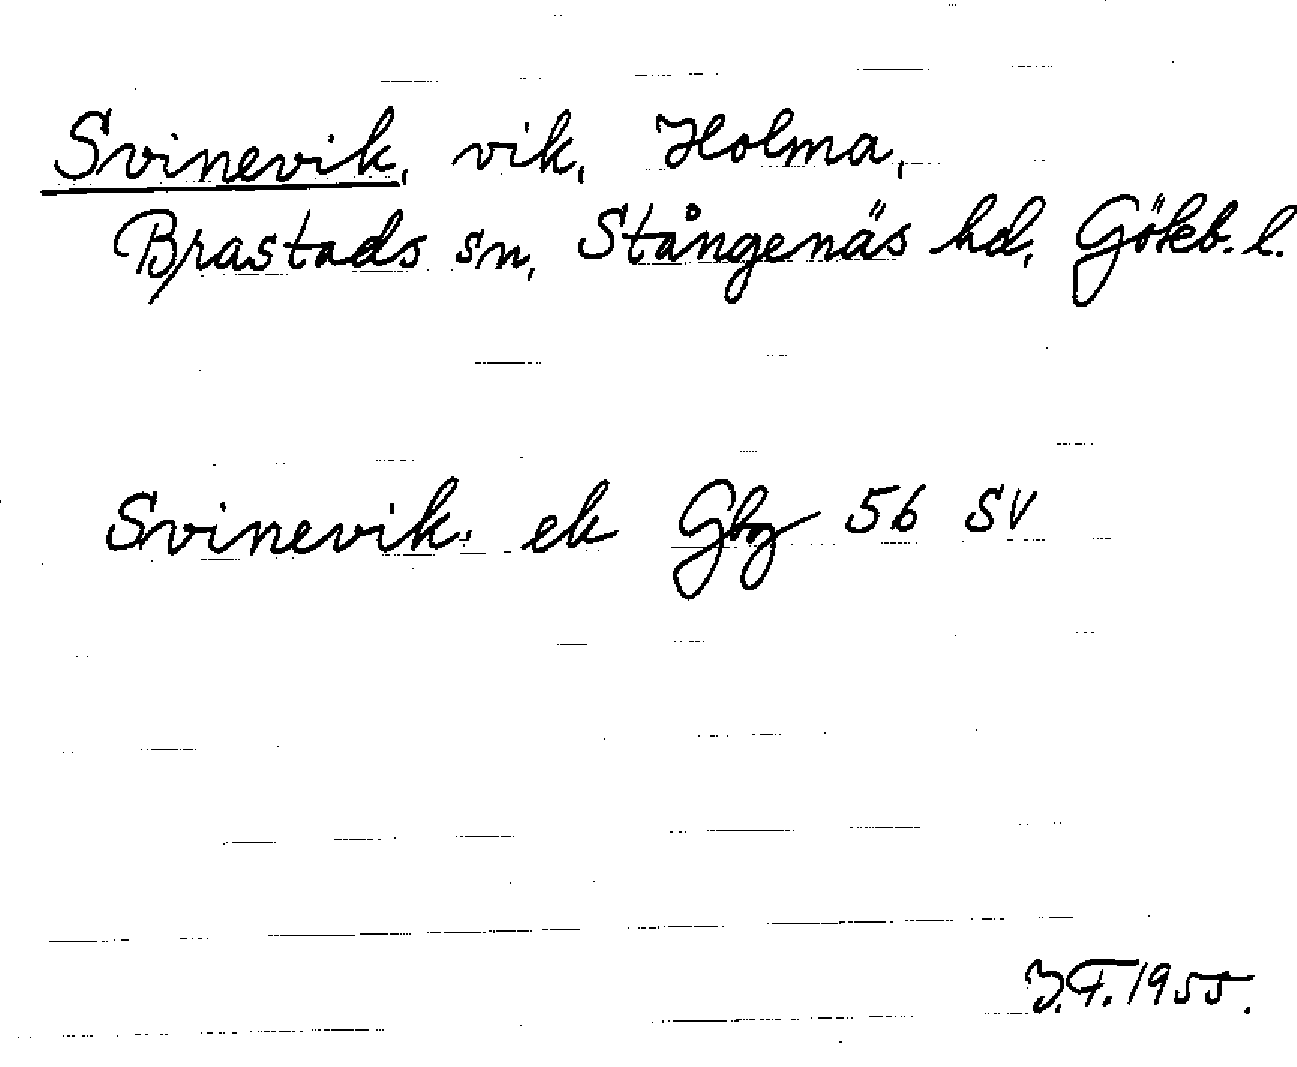 Svinevik, vik, Holma,
Brastads sn, Stångenäs hd, Gökb. l.
Svinevik. ek Gbg 56 SV
J.F. 1955.